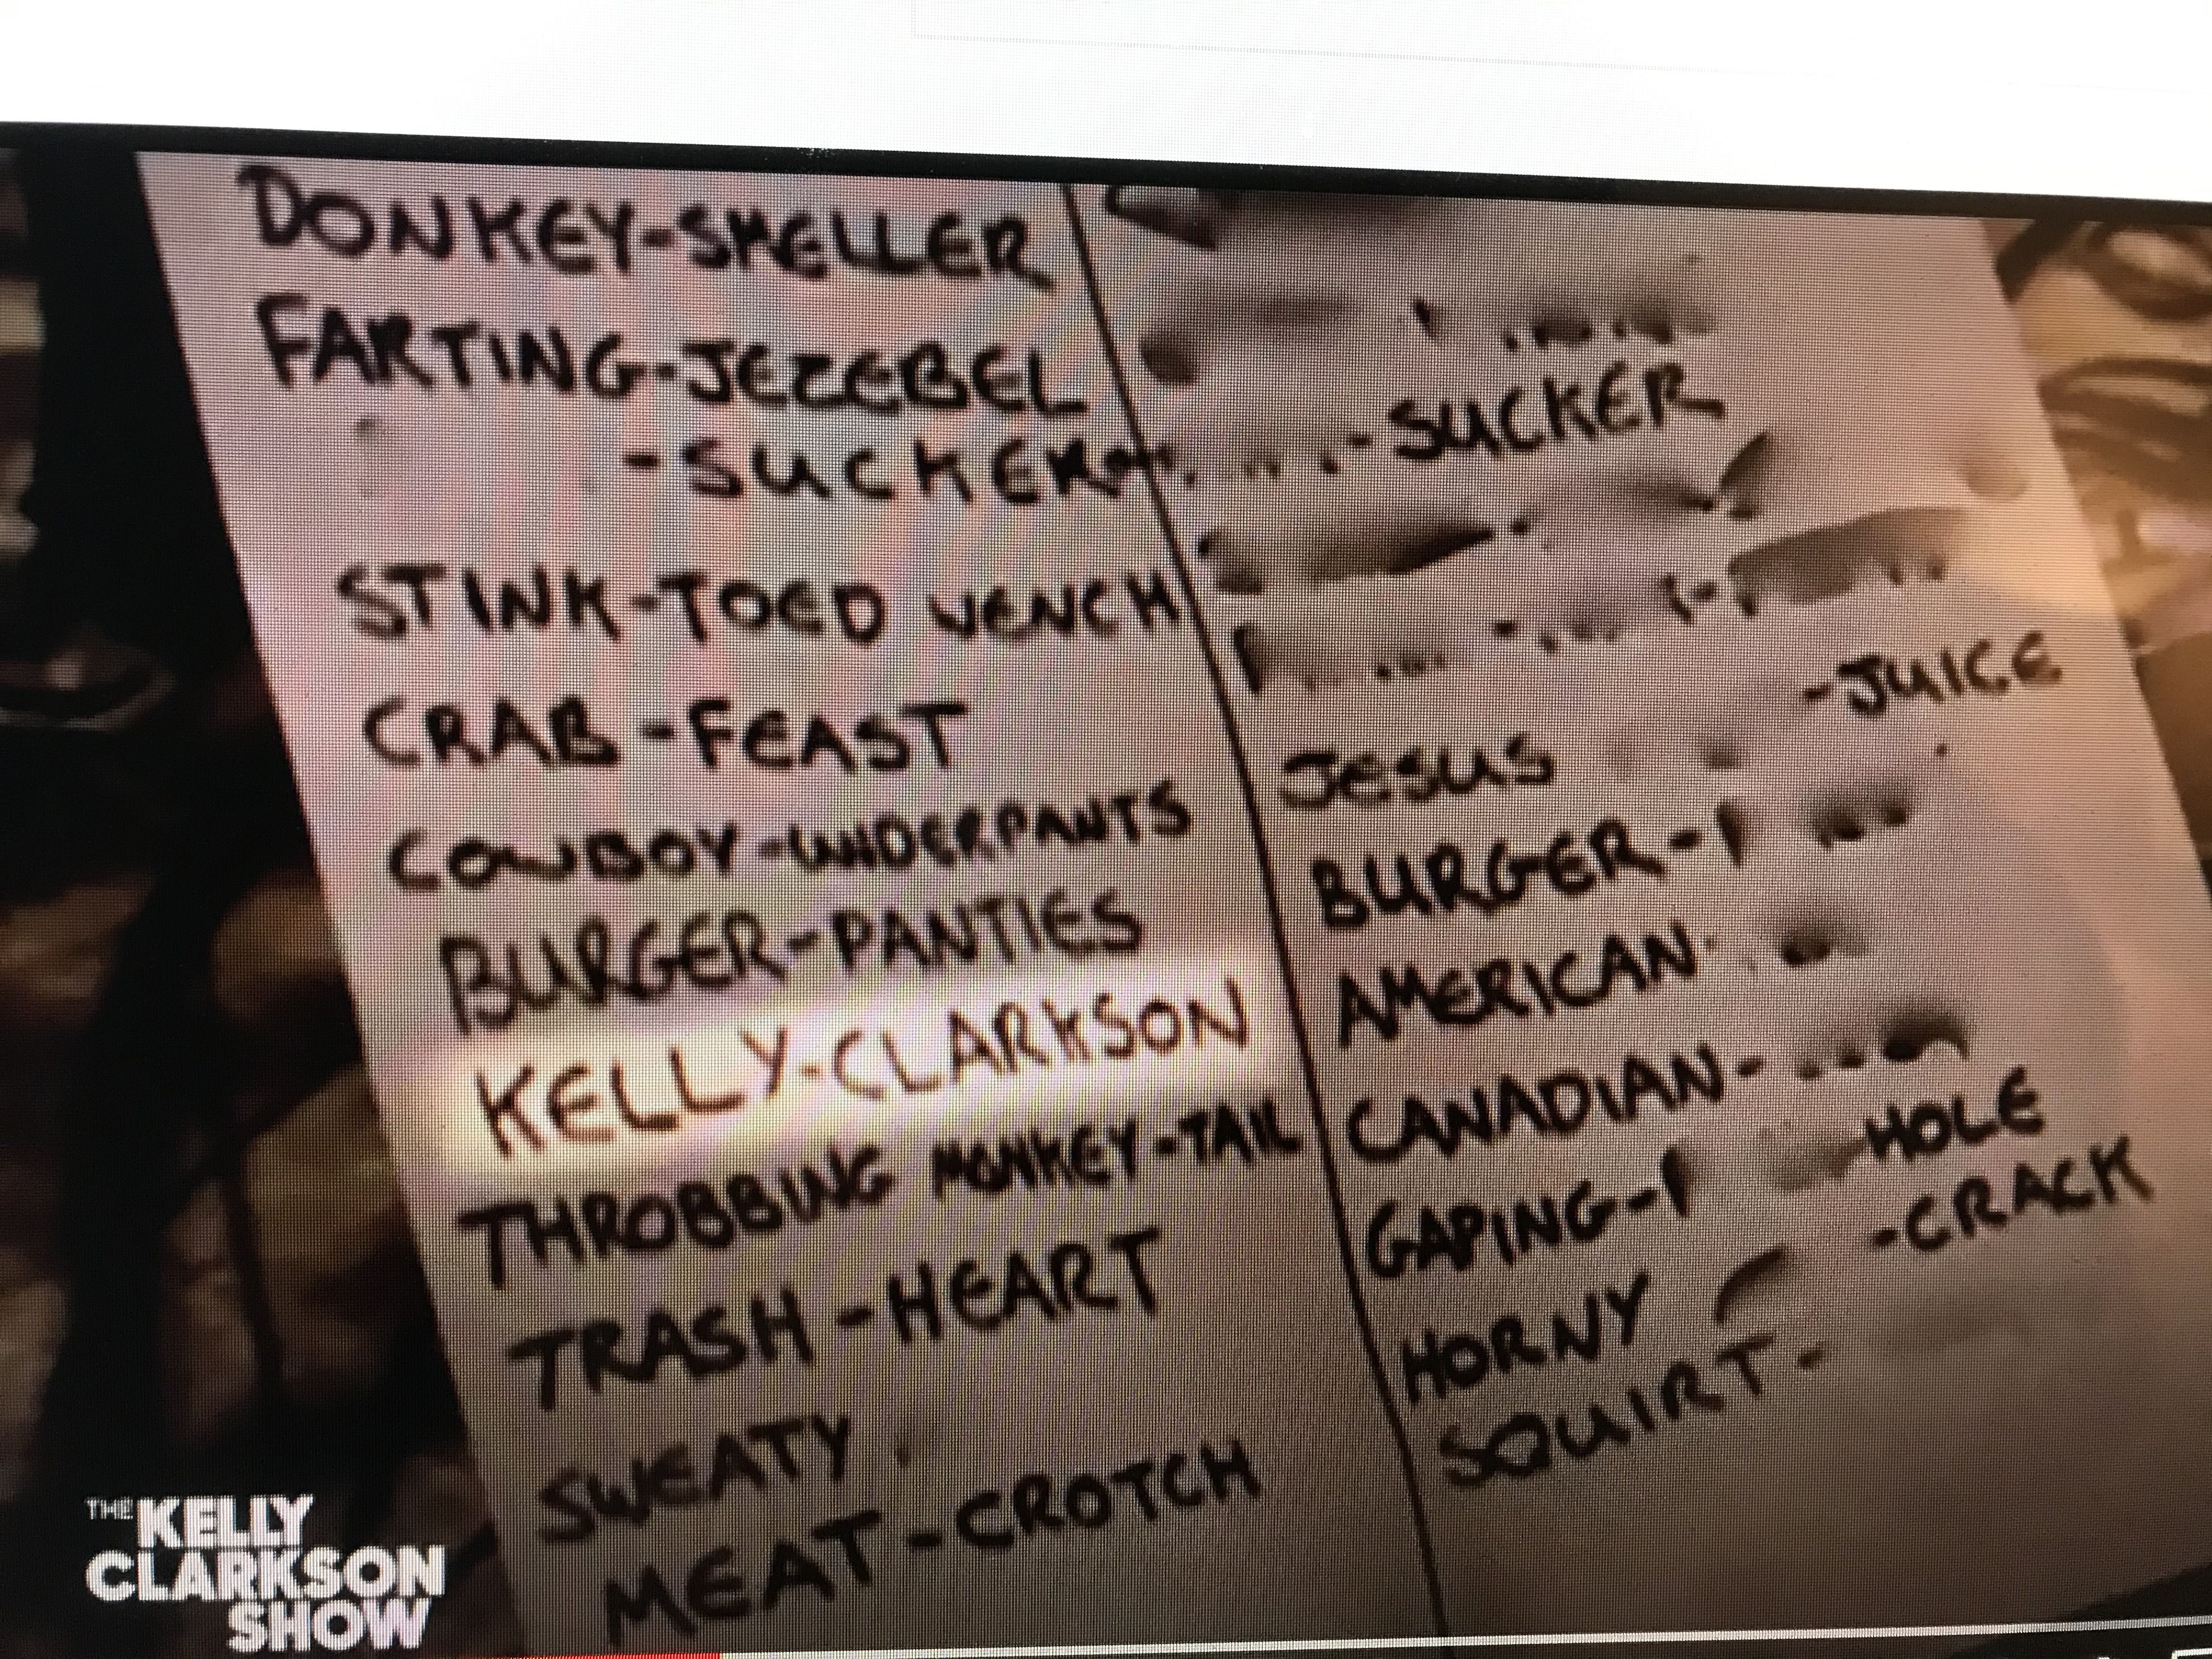 DONKEY-SMELLER
FARTING-JEZEBEL
-SUCKER
STINK-TOED WENCH
CRAB-FEAST
COWBOY-UNDERPANTS
BURGER-PANTIES
KELLY-CLARKSON
THROBBING MONKEY-TAIL
TRASH-HEART
SWEATY
MEAT-CROTCH
-SUCKER
-JUICE
JESUS
BURGER-
AMERICAN
CANADIAN-
GAPING- HOLE
HORNY -CRACK
SQUIRT-
THE KELLY
CLARKSON
SHOW